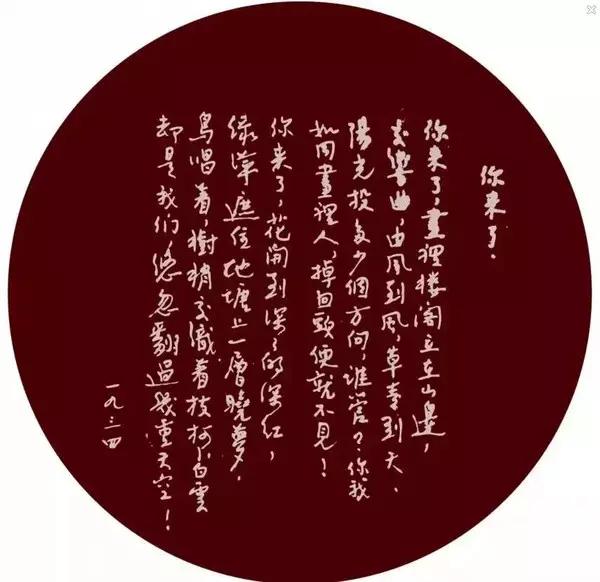 你来了.
你来了,畫裡楼閣立在山邊,
交響曲,由風到風,草青到天,
陽光投多少個方向,誰管?你我
如同畫裡人,掉回頭便就不見!
你来了,花開到深々的深红,
绿萍遮住池塘上一層曉夢,
鳥唱着,樹梢交織着枝柯,白雲
却是我们悠忽翻過幾重天空!
一九三四